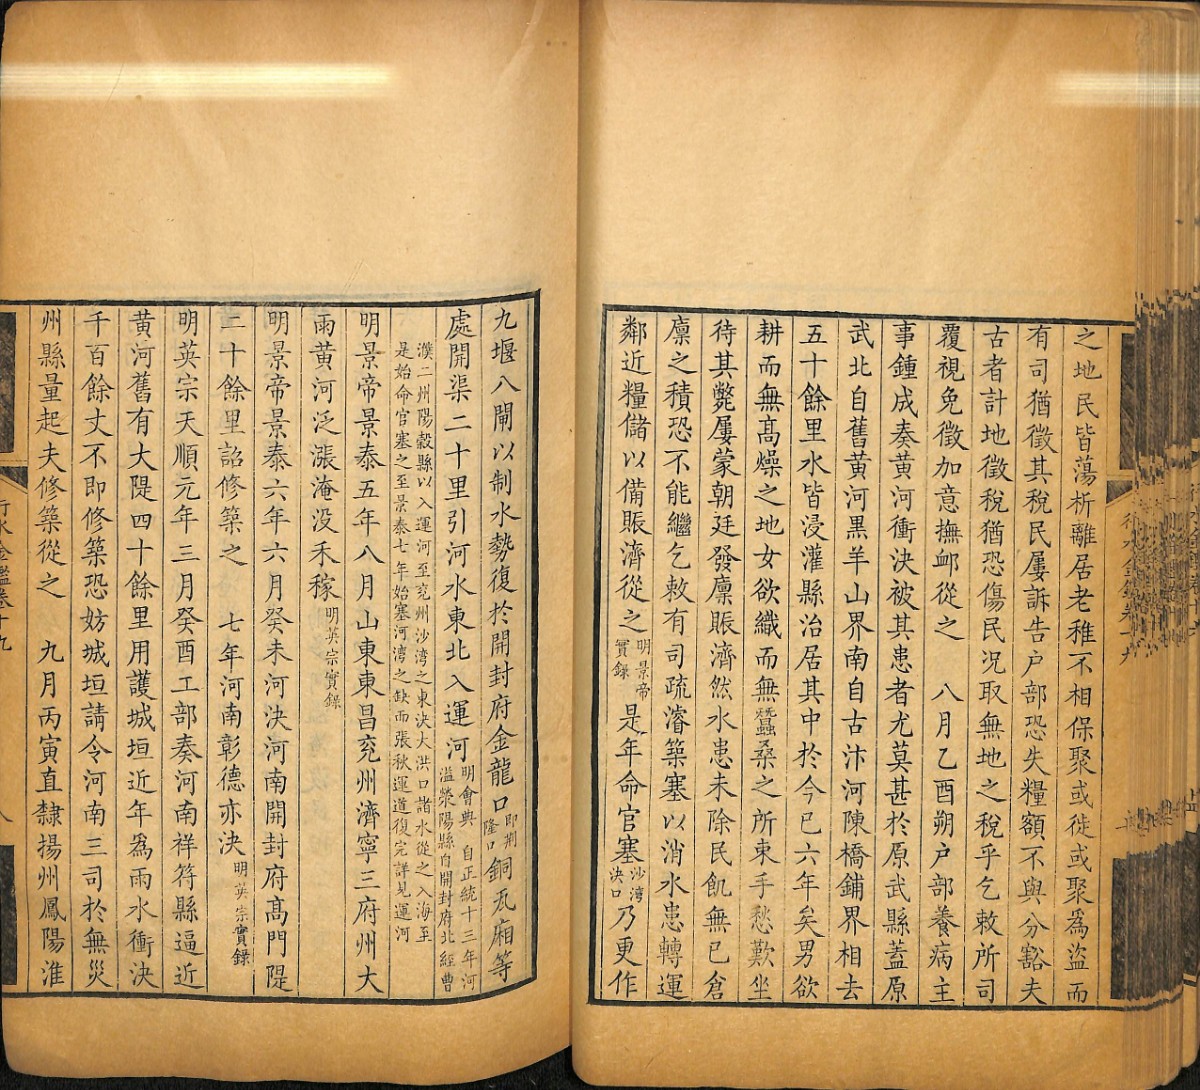 之地民皆蕩析離居老稚不相保聚或徙或聚為盜而
有司猶徵其稅民屢訴告户部恐失糧額不與分豁夫
古者計地徵稅猶恐傷民况取無地之稅乎乞敕所司
覆視免徵加意撫衈從之　八月乙酉朔户部養病主
事鍾成奏黃河衝決被其患者尤莫甚於原武縣蓋原
武北自舊黃河黑羊山界南自古汴河陳橋鋪界相去
五十餘里水皆浸灌縣治居其中於今已六年矣男欲
耕而無髙燥之地女欲織而無蠶桑之所束手愁歎坐
待其斃屢蒙朝廷發廪賑濟然水患未除民飢無已倉
廪之積恐不能繼乞敕有司疏濬築塞以消水患轉運
鄰近糧儲以備賑濟從之明景帝實錄是年命官塞沙灣決口乃更作
九堰八閘以制水勢復於開封府金龍口即荆隆口銅瓦廂等
處開渠二十里引河水東北入運河明會典　自正統十三年河溢滎陽縣自開封府北經曹
濮二州陽穀縣以入運河至兖州沙灣之東決大洪口諸水從之入海至是始命官塞之至景泰七年始塞河灣之缺而張秋運道復完詳見運河
明景帝景泰五年八月山東東昌兖州濟寧三府州大
雨黃河泛漲淹没禾稼明英宗實錄
明景帝景泰六年六月癸未河決河南開封府髙門隄
二十餘里詔修築之　七年河南彰德亦決明英宗實錄
明英宗天順元年三月癸酉工部奏河南祥符縣逼近
黃河舊有大隄四十餘里用護城垣近年為雨水衝決
千百餘丈不即修築恐妨城垣請令河南三司於無災
州縣量起夫修築從之　九月丙寅直隸揚州鳳陽淮
行水金鑑卷十九
八